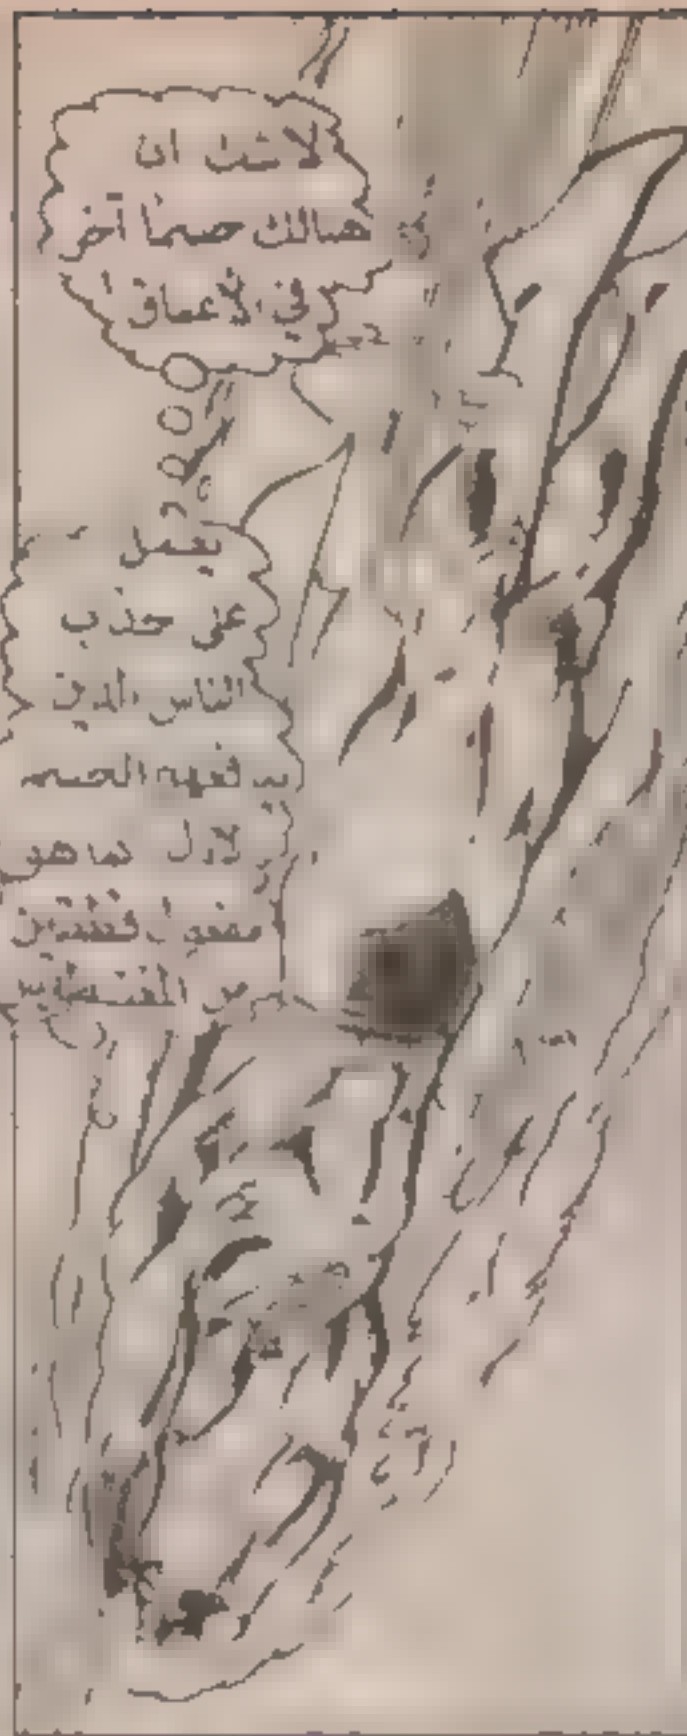 لا شك ان
هنالك جسماً آخر
في الأعماق
يعمل
على جذب
الناس الذين
فيه الجسم
الاول كما هو
مفعول قطعتين
من المغنطيس